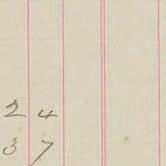 2 4
3 7